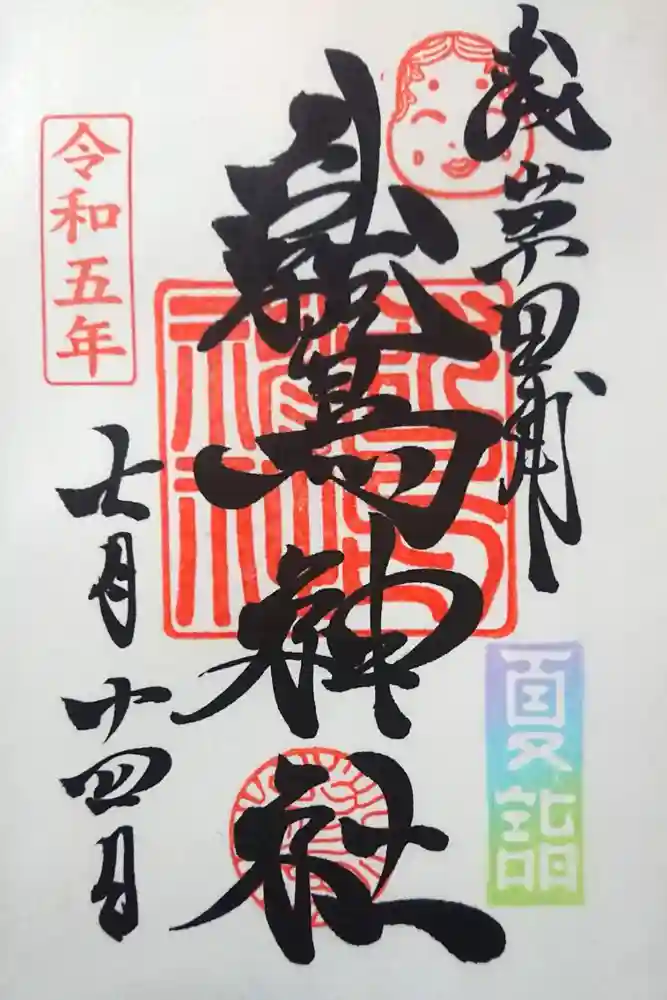 浅草田甫
鷲神社
令和五年
七月十四日
夏詣